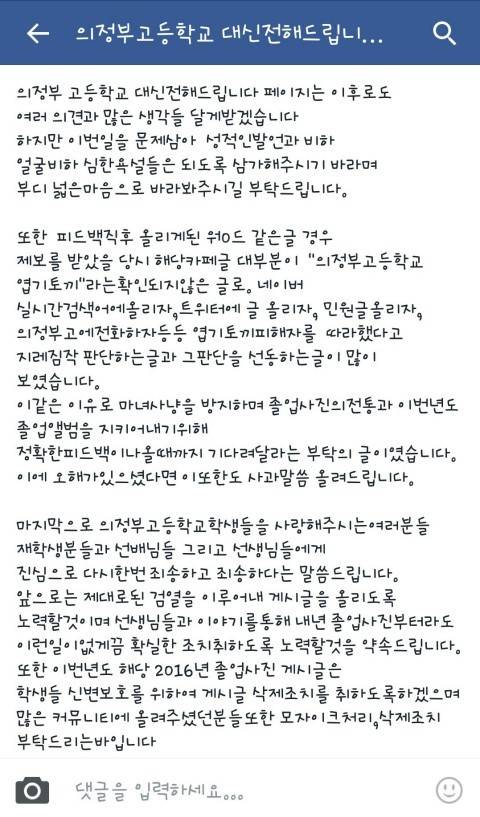 의정부고등학교 대신전해드립니...
의정부 고등학교 대신전해드립니다 페이지는 이후로도
여러 의견과 많은 생각들 달게받겠습니다
하지만 이번일을 문제삼아 성적인발언과 비하
얼굴비하 심한욕설들은 되도록 삼가해주시기 바라며
부디 넓은마음으로 바라봐주시길 부탁드립니다.
또한 피드백직후 올리게된 워0드 같은글 경우
제보를 받았을 당시 해당카페글 대부분이 "의정부고등학교
엽기토끼"라는확인되지않은 글로. 네이버
실시간검색어에올리자,트위터에 글 올리자, 민원글올리자,
의정부고에전화하자등등 엽기토끼피해자를 따라했다고
지레짐작 판단하는글과 그판단을 선동하는글이 많이
보였습니다.
이같은 이유로 마녀사냥을 방지하며 졸업사진의전통과 이번년도
졸업앨범을 지키어내기위해
정확한피드백이나올때까지 기다려달라는 부탁의 글이였습니다.
이에 오해가있으셨다면 이또한도 사과말씀 올려드립니다.
마지막으로 의정부고등학교학생들을 사랑해주시는여러분들
재학생분들과 선배님들 그리고 선생님들에게
진심으로 다시한번 죄송하고 죄송하다는 말씀드립니다.
앞으로는 제대로된 검열을 이루어내 게시글을 올리도록
노력할것이며 선생님들과 이야기를통해 내년 졸업사진부터라도
이런일이없게끔 확실한 조치취하도록 노력할것을 약속드립니다.
또한 이번년도 해당 2016년 졸업사진 게시글은
학생들 신변보호를 위하여 게시글 삭제조치를 취하도록하겠으며
많은 커뮤니티에 올려주셨던분들또한 모자이크처리,삭제조치
부탁드리는바입니다
댓글을 입력하세요...